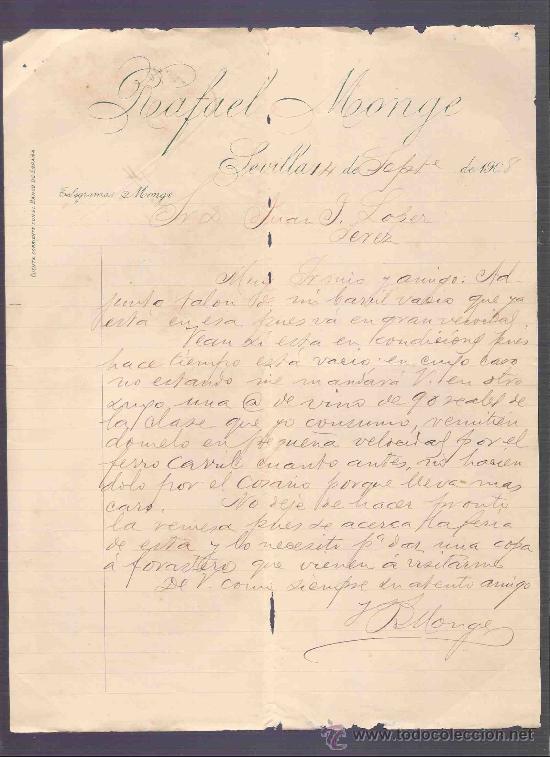 Rafael Monge
Sevilla 14 de Sept.e de 1908
CUENTA CORRIENTE CON EL BANCO DE ESPAÑA
Telegramas Monge
Sr. D. Juan J.
Jerez
Muy Sr mio y amigo: Ad-
junto talon de mi barril vacio que ya
está en esa pues vá en gran velocidad.
Vean si esta en condiciones pues
hace tiempo está vacio; en cuyo caso
no estando me mandara V. en otro
suyo, una @ de vino de 90 reales de
la clase que yo consumo, remitien
domelo en pequeña velocidad por el
ferro carril cuanto antes, no hacien
dolo por el Cosario porque lleva mas
caro. No deje de hacer pronto
la remesa pues se acerca la feria
de esta y lo necesito pª dar una copa
á forastero que vienen a visitarme
De V. como siempre su atento amigo
R Monge
www.todocoleccion.net